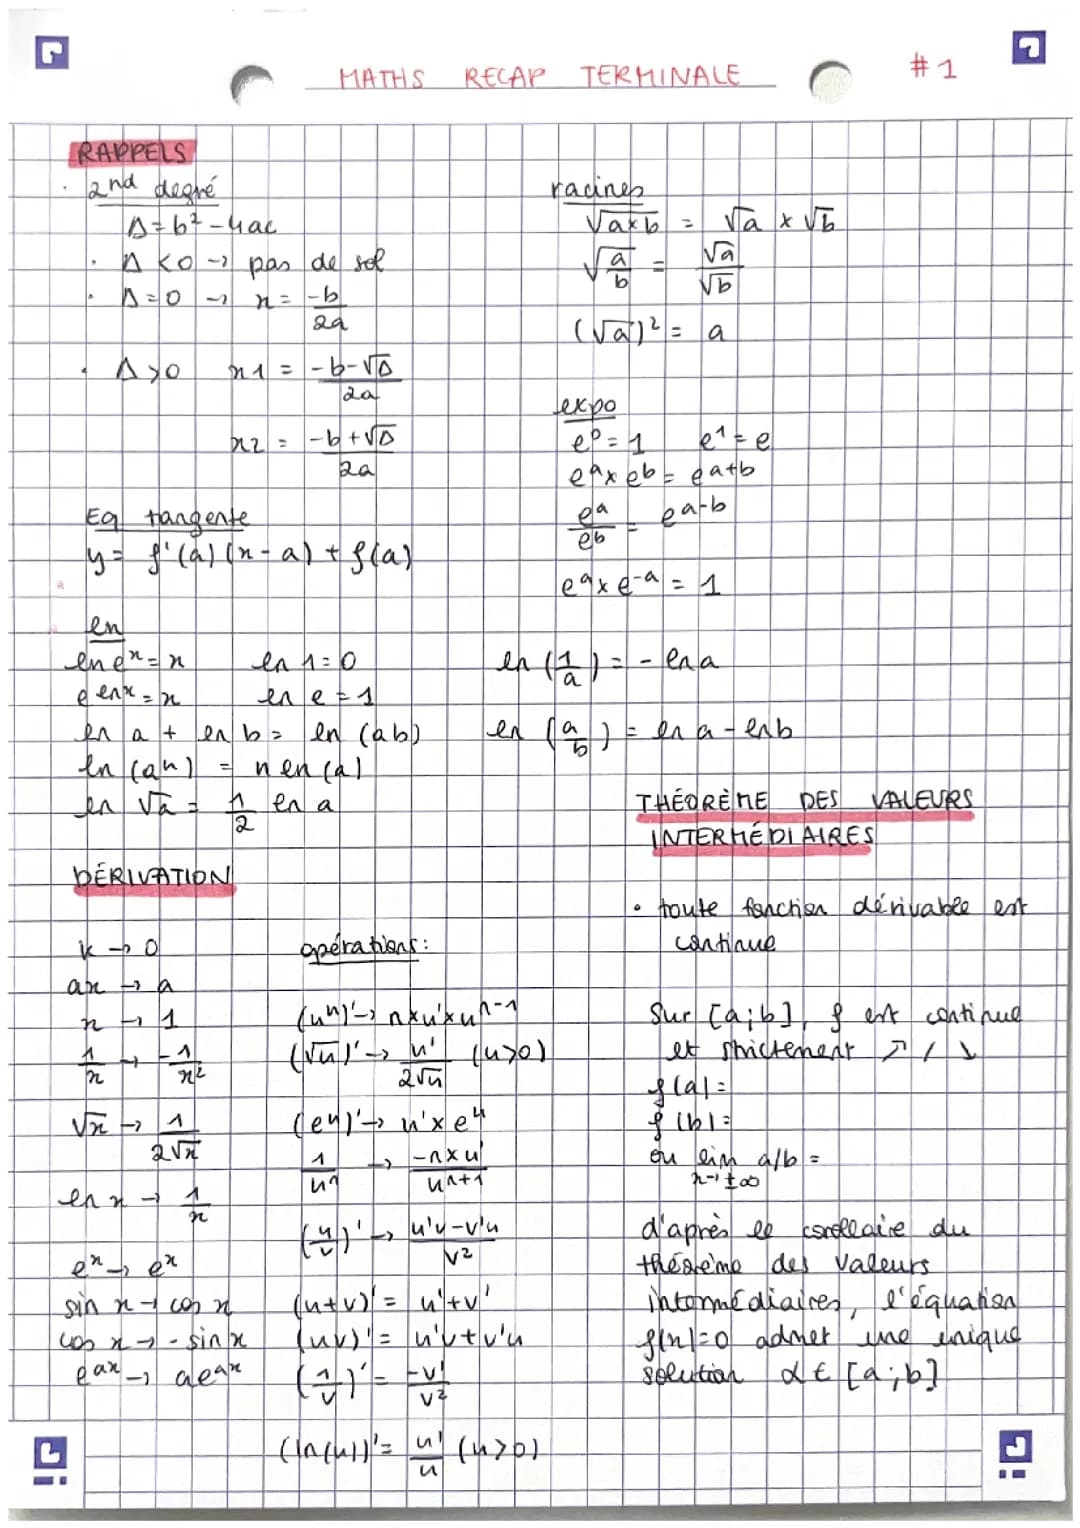 MATHS RECAP TERMINALE
#1
RAPPELS
2nd degré
Δ = b² - 4ac
· Δ < 0 → pas de sol
· Δ = 0 → x = -b/2a
· Δ > 0 x1 = (-b-√Δ)/2a
x2 = (-b+√Δ)/2a
Eq tangente
y = f'(a)(x-a) + f(a)
racines
√(a×b) = √a × √b
√(a/b) = √a/√b
(√a)² = a
expo
e⁰ = 1 e¹ = e
eᵃ × eᵇ = eᵃ⁺ᵇ
eᵃ/eᵇ = eᵃ⁻ᵇ
eᵃ × e⁻ᵃ = 1
ln
ln eˣ = x ln 1 = 0 ln (1/a) = - ln a
e^(ln x) = x ln e = 1
ln a + ln b = ln (ab) ln (a/b) = ln a - ln b
ln (aⁿ) = n ln (a)
ln √a = 1/2 ln a
DÉRIVATION
k → 0
ax → a
x → 1
1/x → -1/x²
√x → 1/(2√x)
ln x → 1/x
eˣ → eˣ
sin x → cos x
cos x → - sin x
e^(ax) → ae^(ax)
opérations :
(uⁿ)' → n×u'×uⁿ⁻¹
(√u)' → u'/(2√u) (u>0)
(eᵘ)' → u' × eᵘ
1/uⁿ → (-n×u')/uⁿ⁺¹
(u/v)' → (u'v-v'u)/v²
(u+v)' = u'+v'
(uv)' = u'v+v'u
(1/v)' = -v'/v²
(ln(u))' = u'/u (u>0)
THÉORÈME DES VALEURS
INTERMÉDIAIRES
· toute fonction dérivable est
continue
Sur [a;b], f est continue
et strictement ↗ / ↘
f(a) =
f(b) =
ou lim a/b =
x→±∞
d'après le corollaire du
théorème des valeurs
intermédiaires, l'équation
f(x)=0 admet une unique
solution α ∈ [a;b]